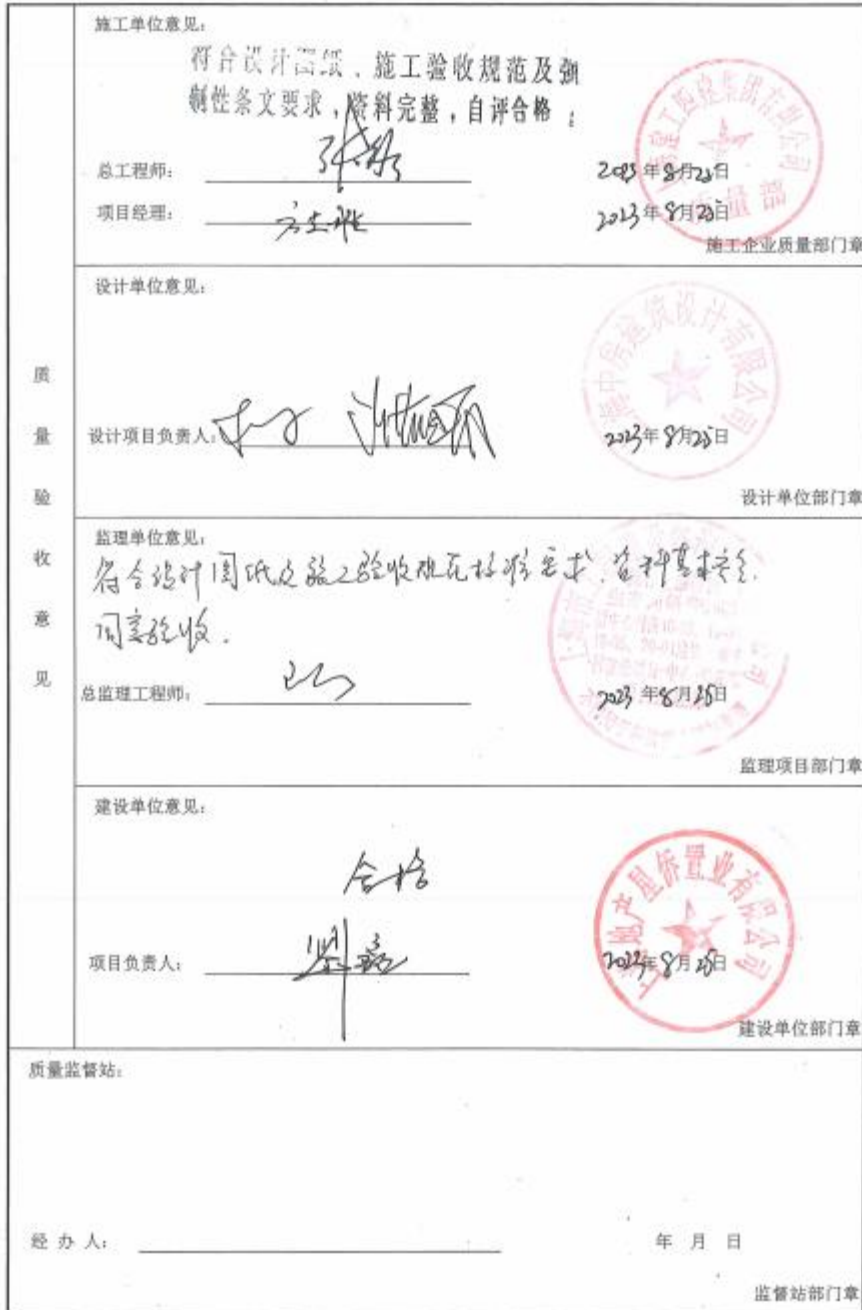 施工单位意见：
符合设计图纸、施工验收规范及强
制性条文要求，资料完整，自评合格；
总工程师：
2023年8月25日
项目经理：
2023年8月25日
质量部
施工企业质量部门章
质量验收意见
设计单位意见：
设计项目负责人：
2023年8月25日
上海中房建筑设计有限公司
设计单位部门章
监理单位意见：
符合设计图纸及施工验收规范标准要求、资料基本齐全.
同意验收.
总监理工程师：
2023年8月25日
监理项目部门章
建设单位意见：
合格
项目负责人：
2023年8月25日
上海地产星侨置业有限公司
建设单位部门章
质量监督站：
经办人：
年 月 日
监督站部门章